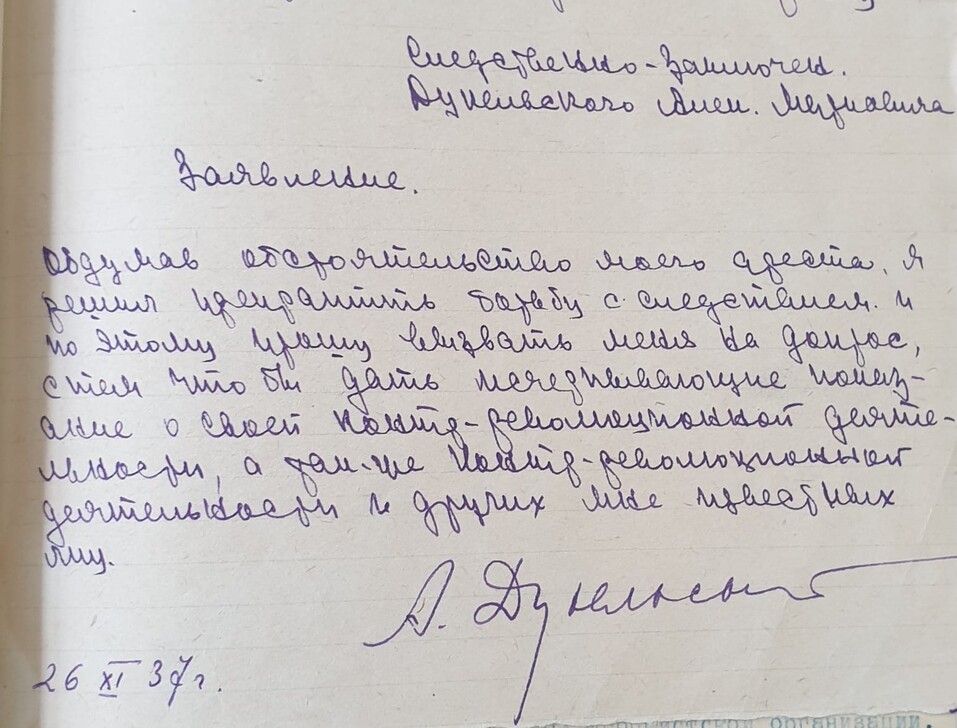 Следственно-заключен.
Дукельского Алек. Марковича
Заявление.
Обдумав обстоятельство моего ареста, я
решил прекратить борьбу с следствием и
по этому прошу вызвать меня на допрос,
с тем что бы дать исчерпывающие показ-
ание о своей контр-революционной деяте-
льности, а так-же контр-революционной
деятельности и других мне известных
лиц.
А. Дукельский
26 XI 37 г.
организации.